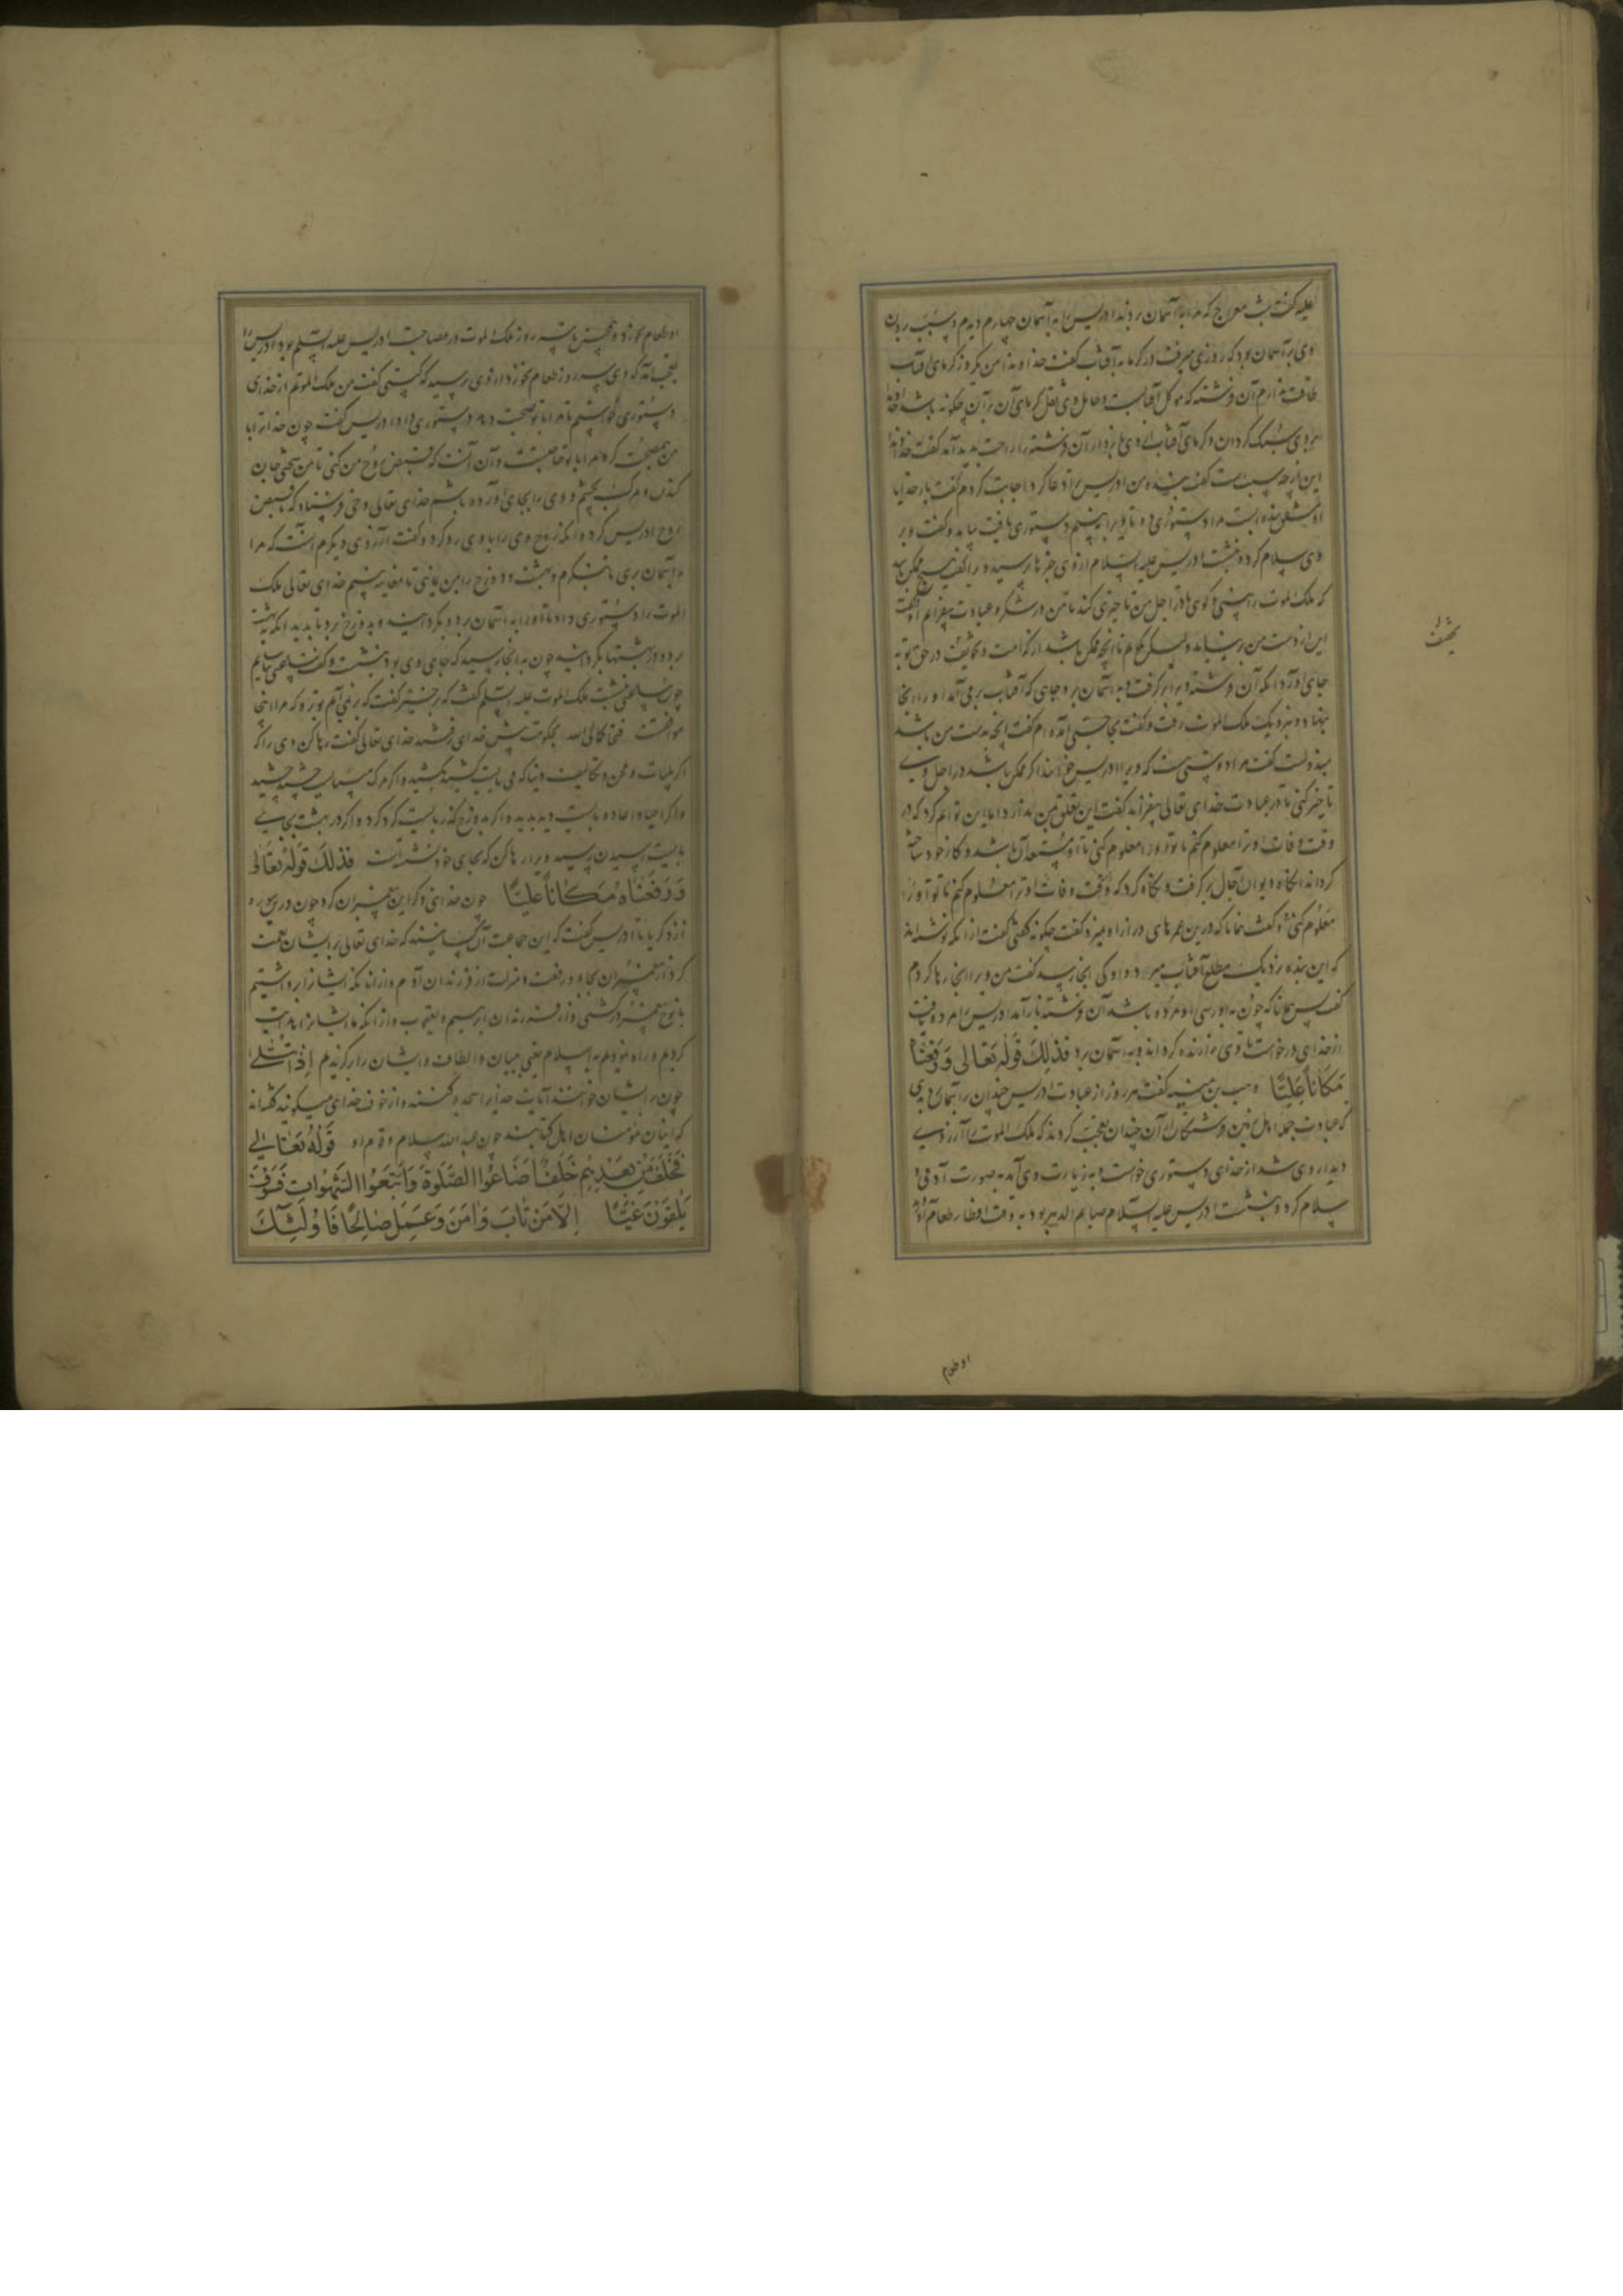 علیه گفت شب معراج که مرا با آسمان بردند ادریس را به آسمان چهارم دیدم و سبب بردن
وی بر آسمان بود که روزی میرفت در کرما به آفتاب گفت خداوندا من یکروز کرمای آفتاب
طاقت ندارم آن فرشته که موکل آفتابست و حامل وی ثقل کرمای آن بر آن چکونه باشد
بر وی سبک کردان و کرمای آفتاب از وی باز دار آن فرشته را راحت پدید آمد گفت خداوندا
این از چه سبب است گفت بنده من ادریس ترا دعا کرد اجابت کردم گفت بار خدایا
مرا دستوری ده تا ویرا ببینم دستوری یافت بیامد و گفت و بر
وی سلام کرد و بنشست ادریس علیه السلام از وی خبرها پرسید ویرا گفت هیچ ممکن باشد
که ملک الموت را بینی و کوی تا در اجل من تاخیری کند تا من در شکر و عبادت بیفزایم
این از دست من بر نیاید و لیکن بکویم تا آنچه ممکن باشد از کرامت و تخفیف در حق تو به
جای آورد آنکه آن فرشته ویرا بر کرفت و به آسمان برد و جای که آفتاب بر می آمد او را آنجا
بنهاد و بنزدیک ملک الموت رفت و گفت بحاجتی آمده ام گفت آنچه بدست من باشد
مبذولست گفت مرا دوستی هست که ویرا ادریس خوانند اگر ممکن باشد در اجل وی
تاخیر کنی تا در عبادت خدای تعالی بیفزاید گفت این تعلق بمن ندارد اما این توانم کرد که در
وقت وفات او ترا معلوم کنم تا تو او را معلوم کنی تا او مستعد آن باشد و کار خود ساخته
کرداند آنکاه دیوان آجال بر کرفت و نکاه کرد که وقت وفات او ترا معلوم کنم تا تو او را
معلوم کنی و گفت همانا که درین عمرهای دراز او میرد گفت چکونه گفتی گفت از آنکه نوشته اند
که این بنده نزدیک مطلع آفتاب میرد و او کی آنجا رسید گفت من ویرا آنجا رها کردم
گفت پس همانا که چون به او رسی او مرده باشد آن فرشته باز آمد ادریس را مرده یافت
از خدای درخواست تا وی را زنده کرداند و به آسمان برد فذلك قوله تعالی وَرَفَعْنَاهُ
مَكَاناً عَلِیًّا وهب بن منبه گفت هر روز از عبادت ادریس چندان بر آسمان بردی
که عبادت جمله اهل زمین و فرشتکان از آن چندان تعجب کردند که ملک الموت را آرزوی
دیدار وی شد از خدای دستوری خواست و به زیارت وی آمد به صورت آدمی و
سلام کرد و بنشست ادریس علیه السلام صایم الدهر بود به وقت افطار طعام آورد
او طعام
او طعام نخورد و همچنین تا سه روز ملک الموت در مصاحبت ادریس علیه السلم بود ادریس را
عجب آمد که وی سه روز طعام نخورد از وی پرسید که کیستی گفت من ملک الموتم از خدای
دستوری خواستم تا مرا با تو صحبت دهد دستوری داد ادریس گفت چون خدا ترا با
من صحبت کرد مرا با تو حاجتیست و آن آنست که قبض روح من کنی تا من سختی جان
کندن و مرک بچشم و وی را بجای آورده باشم خدای تعالی وحی فرستاد که تا قبض
روح ادریس کرد و آنکه روح وی را با وی رد کرد و گفت آرزوی دیکرم آنست که مرا
به آسمان بری تا بنکرم و بهشت و دوزخ را بمن نمایی تا معاینه ببینم خدای تعالی ملک
الموت را دستوری داد تا او را به آسمان برد و بکردانید و به دوزخ برد تا بدید آنکه به بهشت
برد و در بهشتها بکردانید چون به آنجا رسید که جای وی بود بنشست و گفت ساعتی بیاسایم
چون ساعتی بنشست ملک الموت علیه السلم گفت که برخیز گفت که برنمی آیم تو برو که مرا اینجا
موافقست فتحاکما الی الله بحکومت پیش خدای رفتند خدای تعالی گفت رها کن وی را که
اکر بلیات و محن و تکالیف دنیا که می بایست کشید بکشید و اکر مرک می بایست چشید چشید
و اکر احیا و اعاده بایست دید بدید و اکر بدوزخ گذر بایست کرد کرد و اکر در بهشت بجای
بایست رسیدن رسید ویرا رها کن که بجای خود نشسته است فَذلكَ قَولُهُ تَعَالی
وَرَفَعْنَاهُ مَكَاناً عَلِیًّا چون خدای ذکر این پیغمبران کرد چون درین سوره
از زکریا تا ادریس گفت که این جماعت آن کسانیند که خدای تعالی بر ایشان نعمت
کرد از پیغمبران بجاه و رفعت و منزلت از فرزندان آدم و از آنانکه ایشانرا برداشتیم
با نوح پیغمبر در کشتی و از فرزندان ابرهیم و یعقوب و از آنکه ما ایشانرا هدایت
کردیم و راه نمودیم به اسلام یعنی به بیان و الطاف و ایشان را برکزیدیم اِذا تُتْلی
چون بر ایشان خوانند آیات خدایرا سجده کنند و از خوف خدای میکریند گفته اند
که اینان مؤمنان اهل کتابند چون عبد الله سلام و قوم او قَولُهُ تَعَالی
فَخَلَفَ مِنْ بَعْدِهِمْ خَلْفٌ اَضَاعُوا الصَّلوةَ وَاتَّبَعُوا الشَّهَواتِ فَسَوْفَ
یَلْقَوْنَ غَیًّا اِلّا مَنْ تَابَ وَامَنَ وَعَمِلَ صَالِحًا فَاُولٰئِكَ